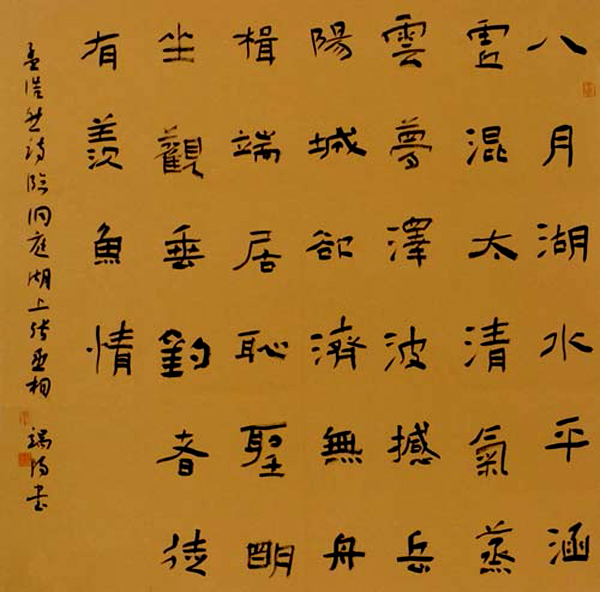 八月湖水平涵
虛混太清氣蒸
雲夢澤波撼岳
陽城欲濟無舟
楫端居恥聖明
坐觀垂釣者徒
有羨魚情
孟浩然詩臨洞庭湖上張丞相
書